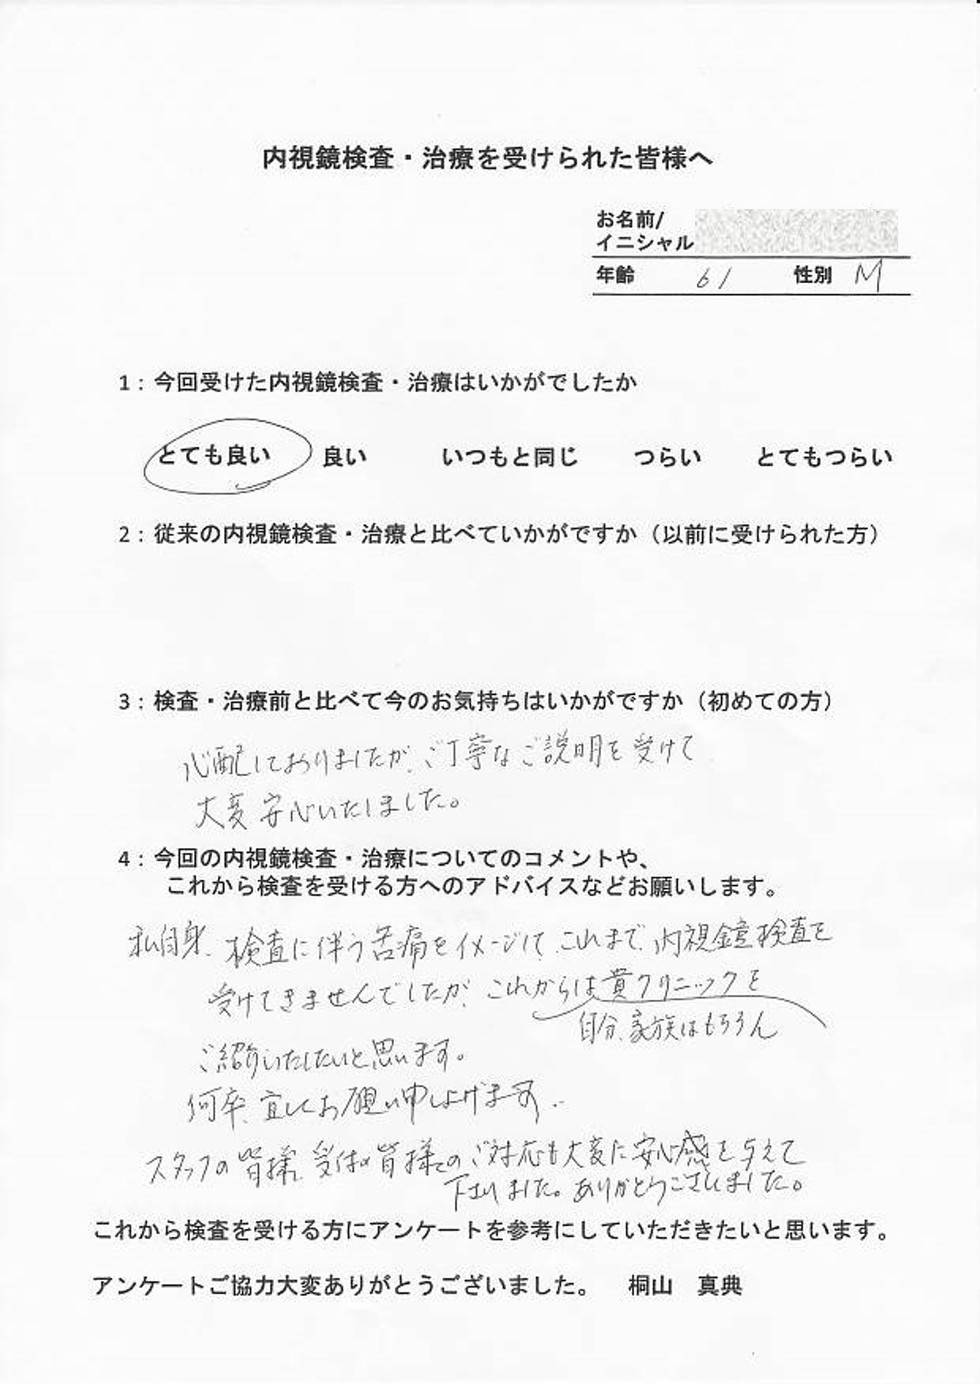 内視鏡検査・治療を受けられた皆様へ
お名前/
イニシャル
年齢 61 性別 M
1：今回受けた内視鏡検査・治療はいかがでしたか
とても良い 良い いつもと同じ つらい とてもつらい
2：従来の内視鏡検査・治療と比べていかがですか（以前に受けられた方）
3：検査・治療前と比べて今のお気持ちはいかがですか（初めての方）
心配しておりましたが、ご丁寧なご説明を受けて
大変安心いたしました。
4：今回の内視鏡検査・治療についてのコメントや、
これから検査を受ける方へのアドバイスなどお願いします。
私自身、検査に伴う苦痛をイメージして、これまで、内視鏡検査を
受けてきませんでしたが、これからは貴クリニックを
自分、家族はもちろん
ご紹介いたしたいと思います。
何卒、宜しくお願い申し上げます。
スタッフの皆様、受付の皆様のご対応も大変に安心感を与えて
下さいました。ありがとうございました。
これから検査を受ける方にアンケートを参考にしていただきたいと思います。
アンケートご協力大変ありがとうございました。 桐山 真典